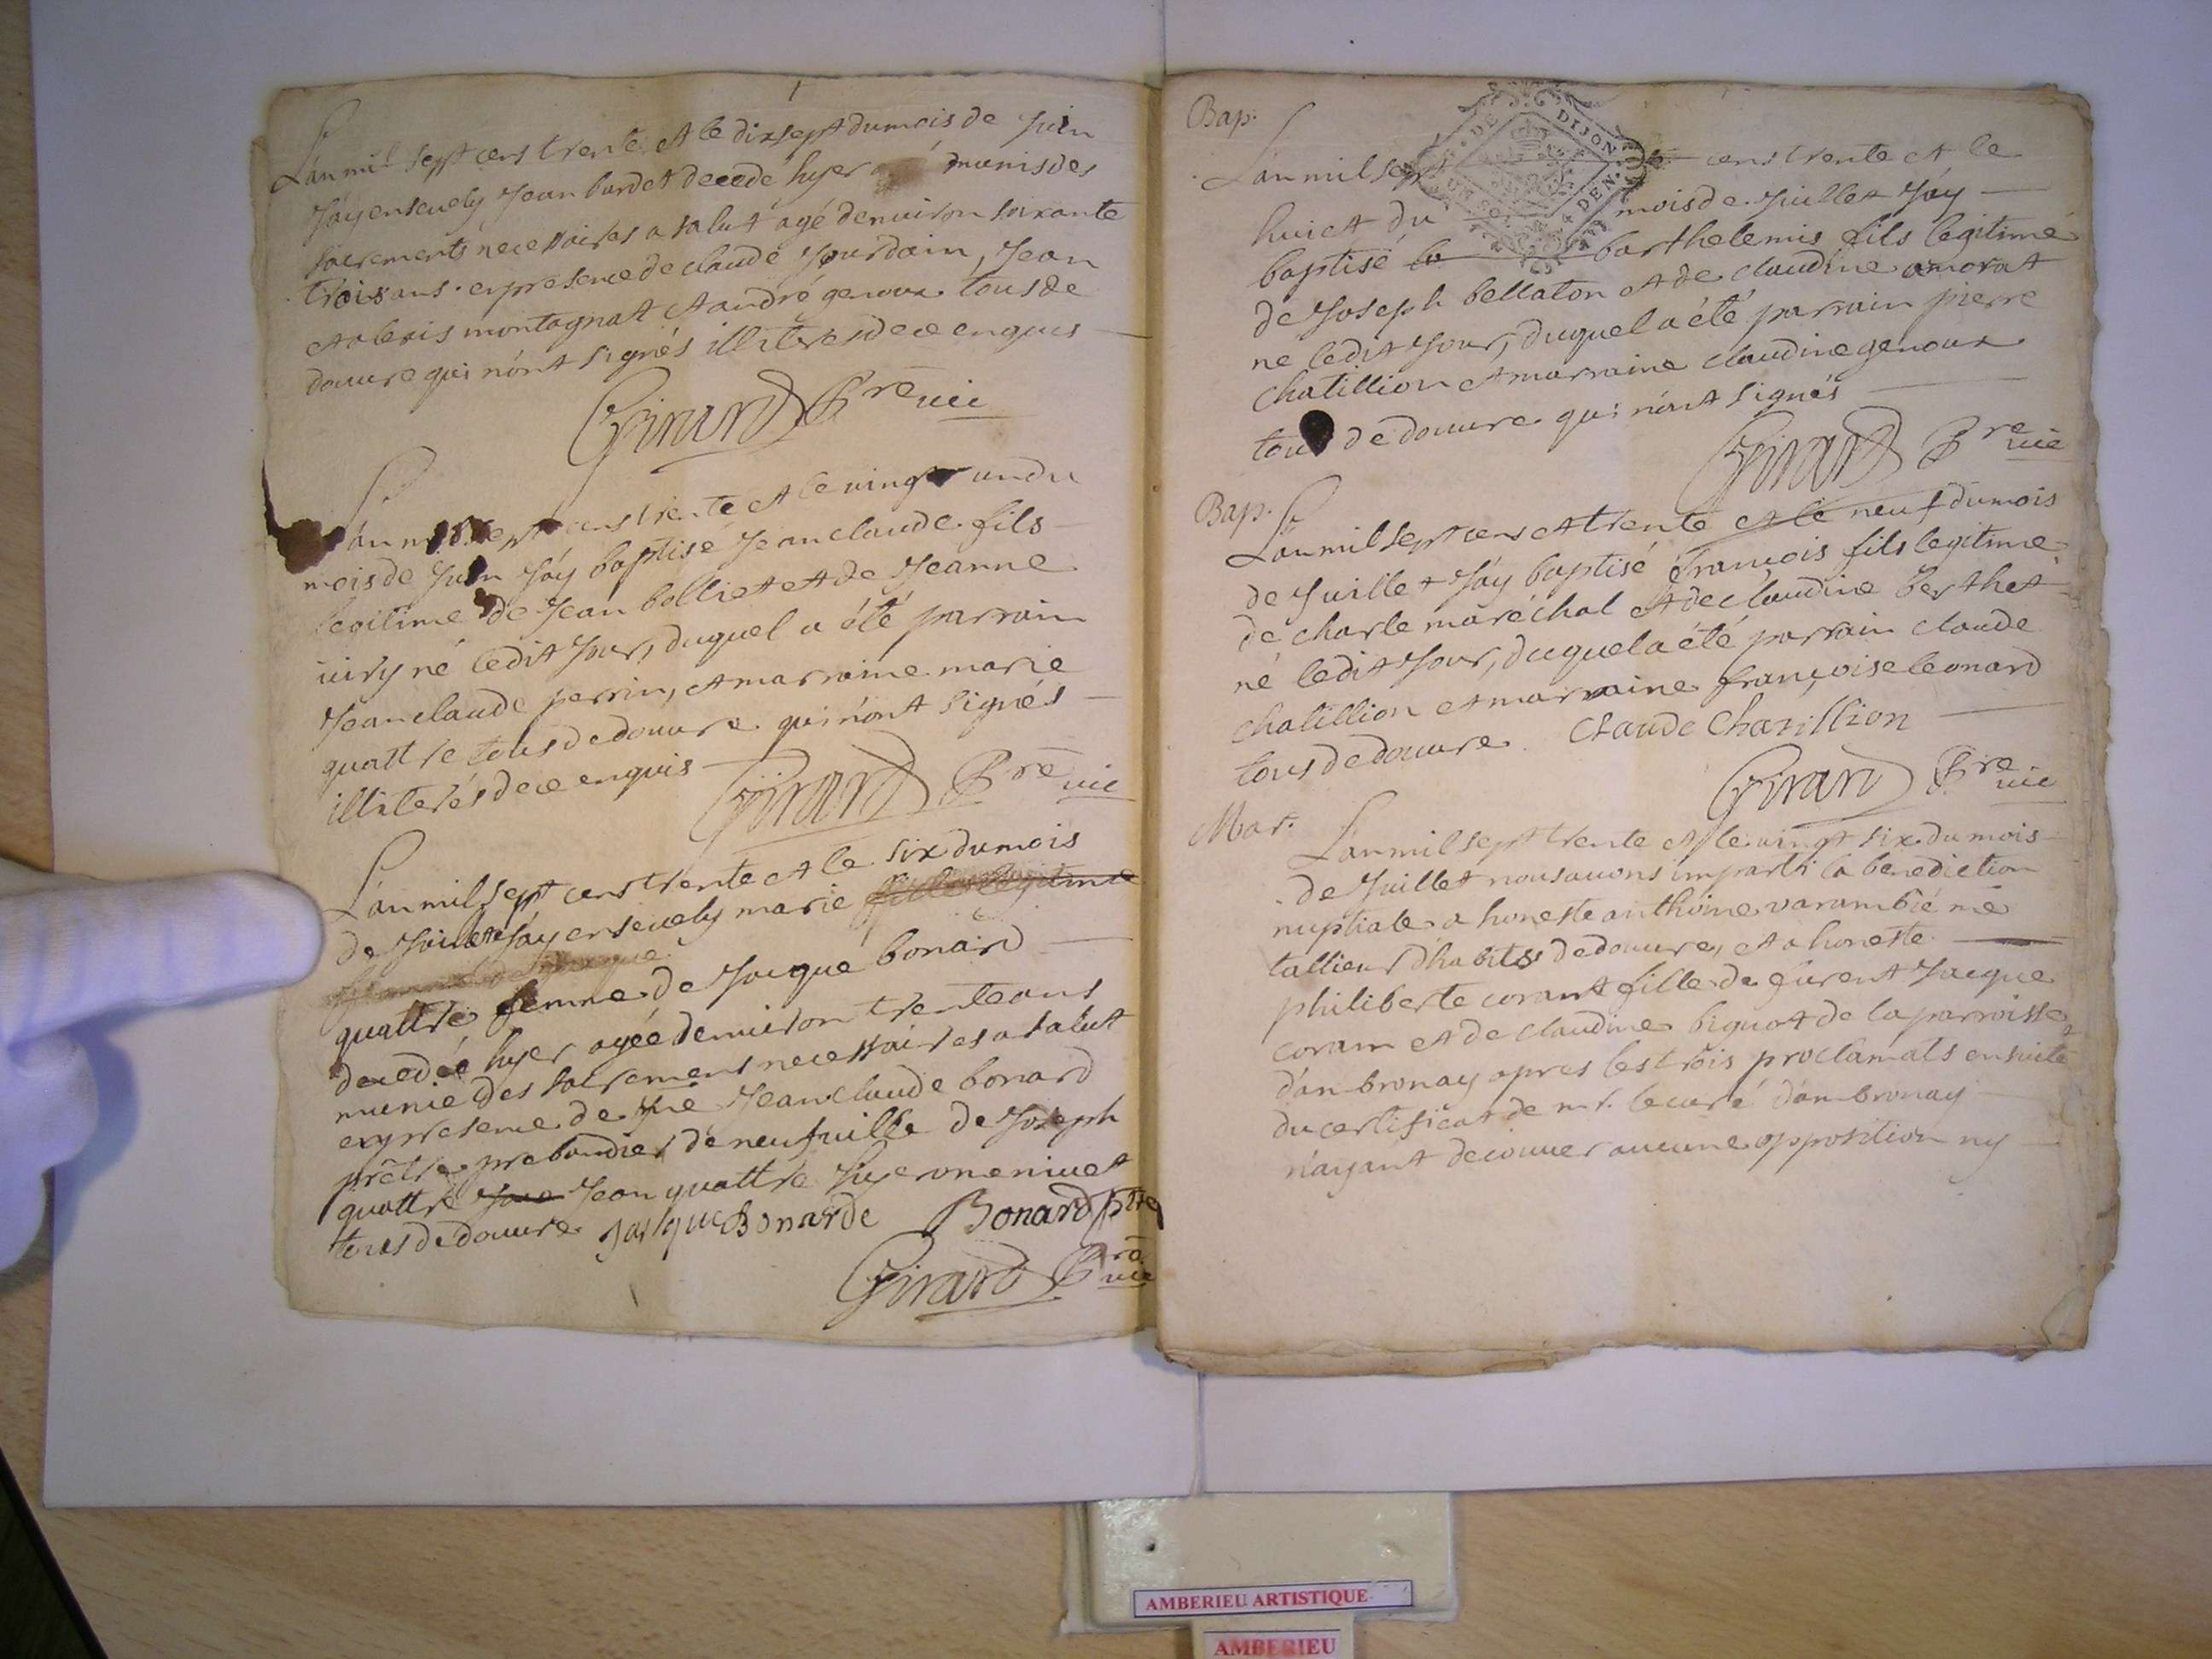 L'an mil sept cens trente et le dixsept du mois de Juin
J'ay enseuely Jean bardet decedé hyer munis des
sacrements necessaires a salut agé denuiron soixante
trois ans. en presence de claude Jourdain, Jean
et alexis montagnat et andré genoux tous de
douure qui n'ont signés illiterés de ce enquis
Girard Pre vic
L'an mil sept cens trente et le vingt un du
mois de Juin J'ay baptisé Jean claude fils
legitime de Jean bolliet et de Jeanne
viry né ledit Jour, duquel a été parrain
Jean claude perrin, et marraine marie
quattre tous de douure qui n'ont signés
illiterés de ce enquis
Girard Pre vic
L'an mil sept cens trente et le six du mois
de Juillet J'ay enseuely marie fille legitime
quattre femme de Jacque bonard
decedée hyer agée denuiron trente ans
munie des sacremens necessaires a salut
en presence de Jean claude bonard
prêtre prebandier de neufuille de Joseph
quattre Jean quattre hyeronenivet
tous de douure Jacque Bonarde Bonard ptre
Girard Pre vic
Bap.
DE DIJON
UN SO. 4 DEN.
L'an mil sept cens trente et le
huict du mois de Juillet J'ay
baptisé la barthelemis fils legitime
de Joseph bellaton et de claudine amorat
ne ledit Jour, duquel a été parrain pierre
chatillion et marraine claudine genoux
tous de douure qui n'ont signés
Girard Pre vic
Bap.
L'an mil sept cens et trente et le neuf du mois
de Juillet J'ay baptisé françois fils legitime
de charle maréchal et de claudine berthet
né ledit Jour, duquel a été parrain claude
chatillion et marraine françoise leonard
tous de douure. Claude Chatillion
Girard Pre vic
Mar.
L'an mil sept trente et le vingt six du mois
de Juillet nous auons imparti la benediction
nuptiale a honeste anthoine varambié me
tallieur d'habits de douure, et a honeste
philiberte corant fille de furent Jacque
coram et de claudine biguat de la parroisse
d'ambronay apres les trois proclamats ensuite
du certificat de mr. le curé d'ambronay
n'ayant decouuer aucune opposition ny
AMBERIEU ARTISTIQUE
AMBERIEU